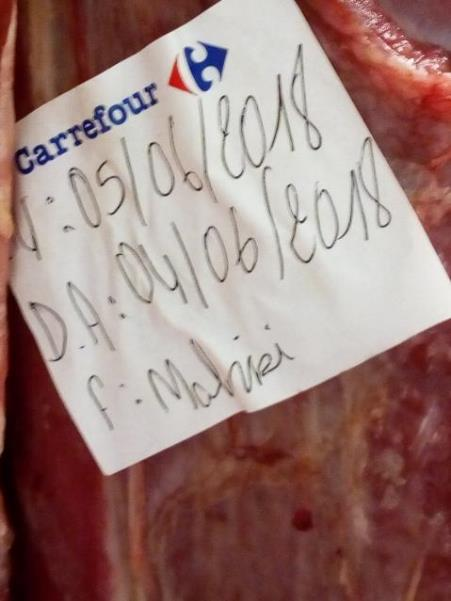 Carrefour
:05/06/2018
D.A:04/06/2018
F: